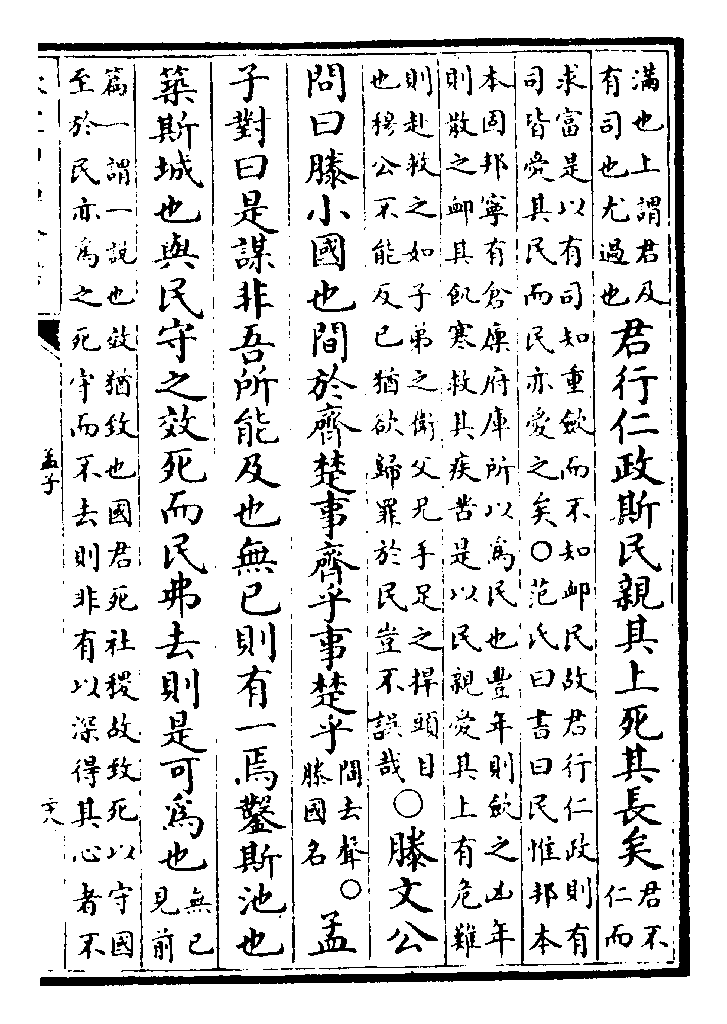 滿也上謂君及
有司也尤過也
君行仁政斯民親其上死其長矣
君不
仁而
求富是以有司知重斂而不知卹民故君行仁政則有
司皆愛其民而民亦愛之矣○范氏曰書曰民惟邦本
本固邦寧有倉廩府庫所以爲民也豐年則斂之凶年
則散之卹其飢寒救其疾苦是以民親愛其上有危難
則赴救之如子弟之衛父兄手足之捍頭目
也穆公不能反已猶欲歸罪於民豈不誤哉
○滕文公
問曰滕小國也間於齊楚事齊乎事楚乎
間去聲○
滕國名
孟
子對曰是謀非吾所能及也無已則有一焉鑿斯池也
築斯城也與民守之效死而民弗去則是可爲也
無已
見前
篇一謂一說也效猶致也國君死社稷故致死以守國
至於民亦爲之死守而不去則非有以深得其心者不
孟子